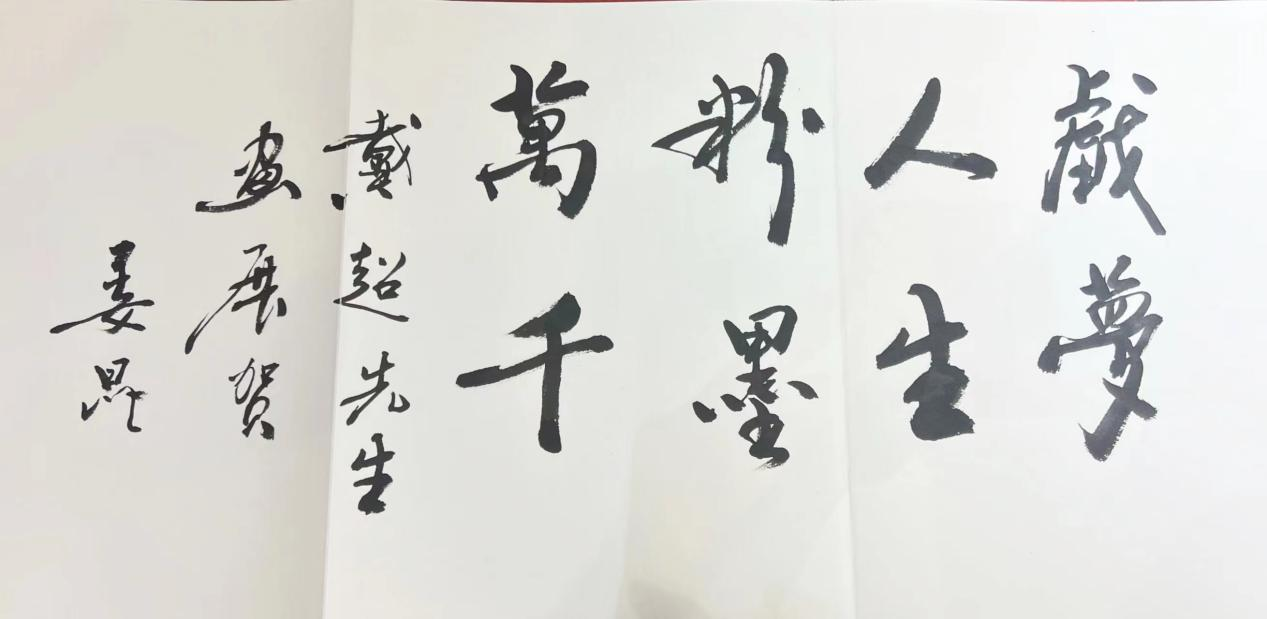 戲夢
人生
粉墨
萬千
戴超先生
畫展賀
姜昆